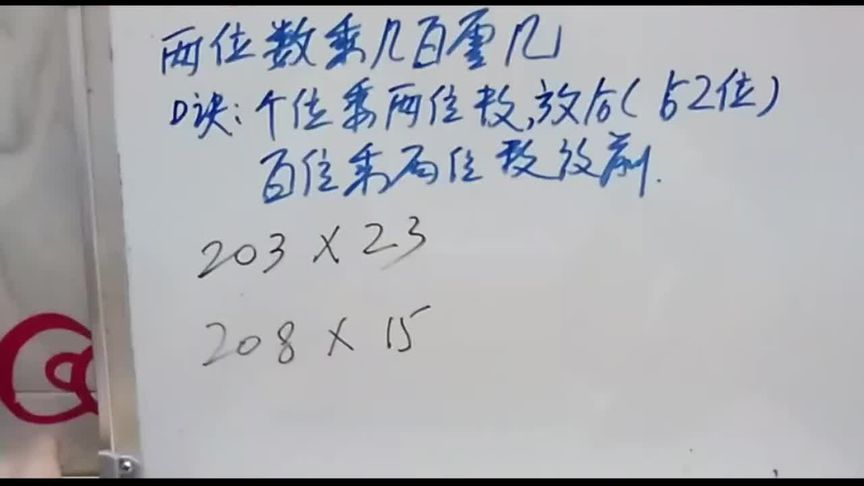 两位数乘几百零几
口诀:个位乘两位数,放后(占2位)
百位乘两位数放前.
203×23
208×15